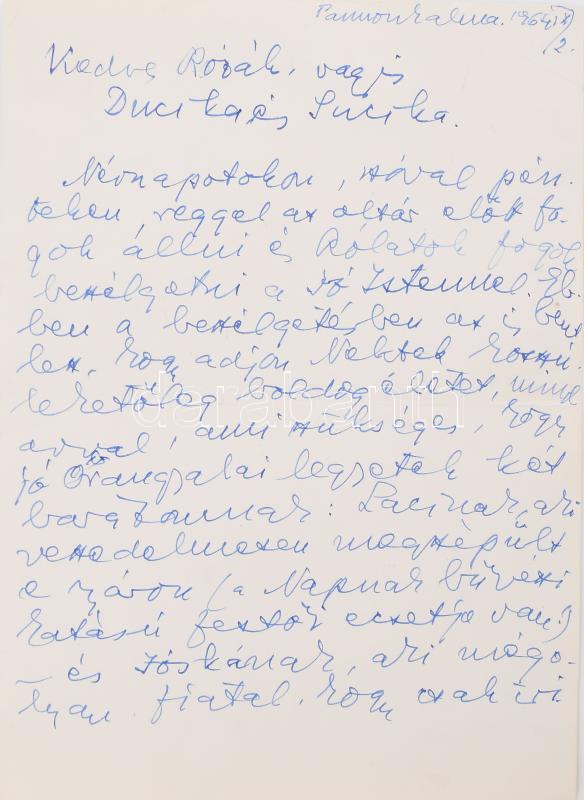 Pannonhalma. 1964. IX/2.
Kedves Rózák, vagyis
Ducika és Sucika.
Névnapotokon, szóval pén-
teken, reggel az oltár előtt fo-
gok állni és Rólatok fogok
beszélgetni a Jó Istennel. Eb-
ben a beszélgetésben az is benne
lesz, hogy adjon Nektek hosszú,
lehetőleg boldog életet, mind
avval, ami szükséges, hogy
jó Őrangyalai legyetek két
barátomnak: Lacinak, aki
veszedelmesen megszépült
a nyáron (a Napnak bűvészi
hatású festői ecsetje van!)
– és Jóskának, aki még o-
lyan fiatal, hogy csak iri-
darabanth